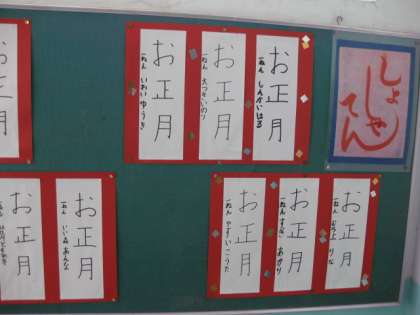 しょしゃてん
お正月
一ねん しんかいはる
お正月
一ねん
お正月
一ねん いわい ゆうき
お正月
お正月
一ねん むらかみ りな
お正月
一ねん すな あかり
お正月
一ねん やすい こうた
お正月
一ねん いい森 あんな
お正月
一ねん